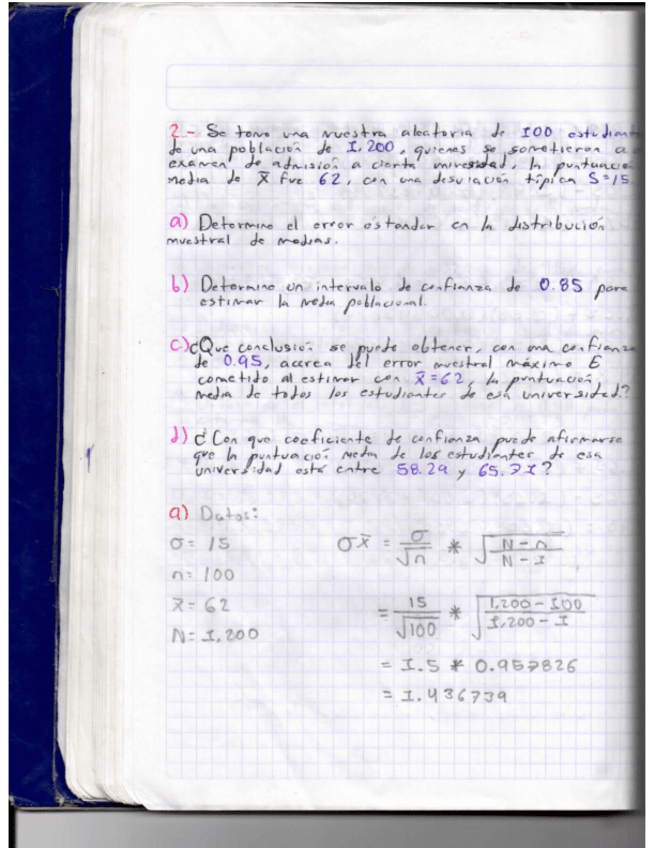 2.- Se tomo una muestra aleatoria de 100 estudiant
de una población de 1,200, quienes se sometieron a
examen de admisión a cierta universidad, la puntuació
media de x̄ fue 62, con una desviación típica S=15
a) Determine el error estandar en la distribución
muestral de medias.
b) Determine un intervalo de confianza de 0.85 para
estimar la media poblacional.
c) ¿Que conclusión se puede obtener, con una confianza
de 0.95, acerca del error muestral máximo E
cometido al estimar con x̄=62, la puntuación
media de todos los estudiantes de esa universidad?
d) ¿Con que coeficiente de confianza puede afirmarse
que la puntuación media de los estudiantes de esa
universidad está entre 58.29 y 65.71?
a) Datos:
σ= 15 σx̄ = σ/√n * √(N-n/N-1)
n= 100
x̄= 62 = 15/√100 * √(1,200-100/1,200-1)
N= 1,200
= 1.5 * 0.957826
= 1.436739